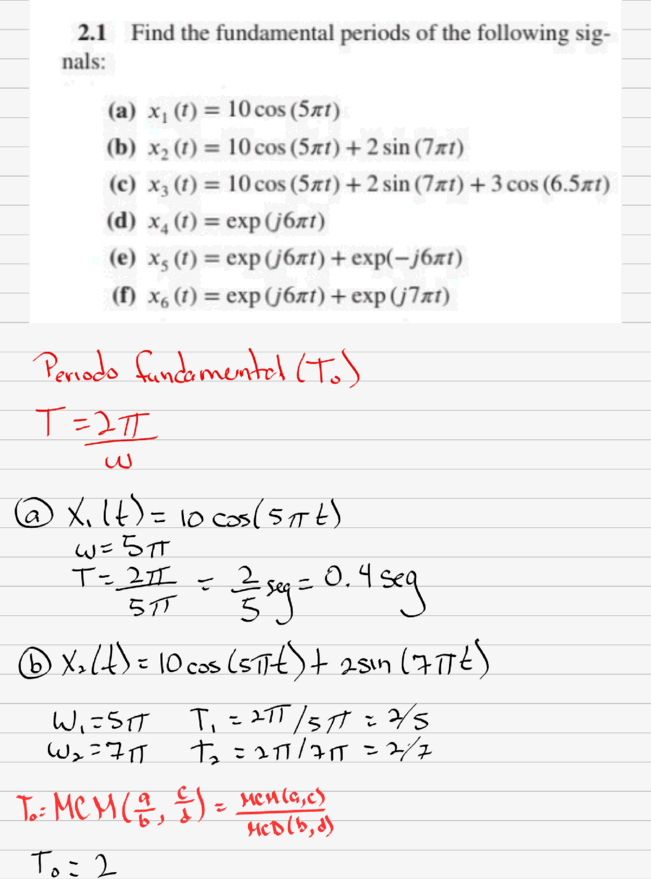 2.1 Find the fundamental periods of the following sig-
nals:
(a) x₁ (t) = 10 cos (5πt)
(b) x₂ (t) = 10 cos (5πt) + 2 sin (7πt)
(c) x₃ (t) = 10 cos (5πt) + 2 sin (7πt) + 3 cos (6.5πt)
(d) x₄ (t) = exp (j6πt)
(e) x₅ (t) = exp (j6πt) + exp(−j6πt)
(f) x₆ (t) = exp (j6πt) + exp (j7πt)
Periodo fundamental (T₀)
T = 2π/ω
(a) X₁(t) = 10 cos(5πt)
ω = 5π
T = 2π/5π = 2/5 seg = 0.4 seg
(b) X₂(t) = 10 cos(5πt) + 2 sin (7πt)
W₁ = 5π T₁ = 2π/5π = 2/5
W₂ = 7π T₂ = 2π/7π = 2/7
T₀ = MCM(a/b, c/d) = MCM(a,c)/MCD(b,d)
T₀ = 2